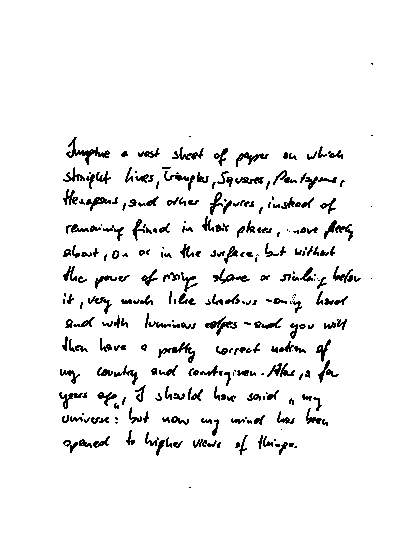 Imagine a vast sheet of paper on which
straight lines, Triangles, Squares, Pentagons,
Hexagons, and other figures, instead of
remaining fixed in their places, move freely
about, on or in the surface, but without
the power of rising above or sinking below
it, very much like shadows - only hard
and with luminous edges - and you will
then have a pretty correct notion of
my country and countrymen. Alas, a few
years ago, I should have said „my
universe: but now my mind has been
opened to higher views of things.